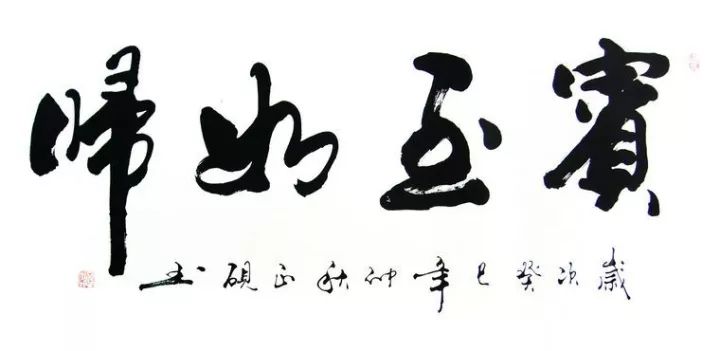 賓至如歸
歲次癸巳年仲秋正硯书